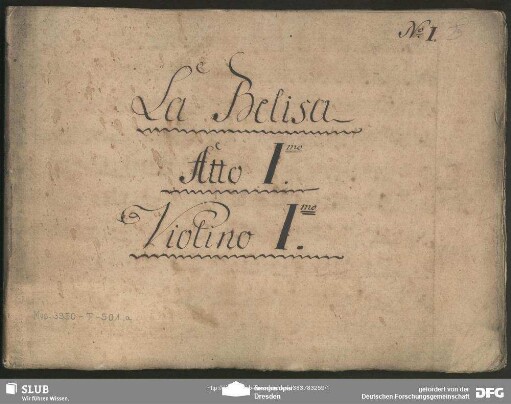 No. I.
La Belisa
Atto I.mo
Violino I.mo
Mus. 3550-F-501a
SLUB
Wir führen Wissen.
Dresden
gefördert von der
Deutschen Forschungsgemeinschaft
DFG